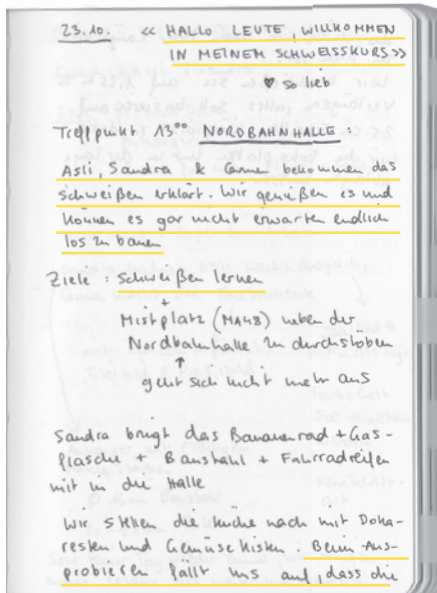 23.10. << HALLO LEUTE, WILLKOMMEN
IN MEINEM SCHWEISSKURS>>
♥ so lieb
Treffpunkt 13⁰⁰ NORDBAHNHALLE :
Asli, Sandra & Carmen bekommen das
schweißen erklärt. Wir genießen es und
können es gar nicht erwarten endlich
los zu bauen
Ziele : Schweißen lernen
+
Mistplatz (MA48) neben der
Nordbahnhalle zu durchstöbern
↑
geht sich nicht mehr aus
Sandra bringt das Bananenrad + Gas-
flasche + Baustahl + Fahrradreifen
mit in die Halle
Wir stellen die Küche nach mit Doka-
resten und Gemüsekisten. Beim Aus-
probieren fällt uns auf, dass die